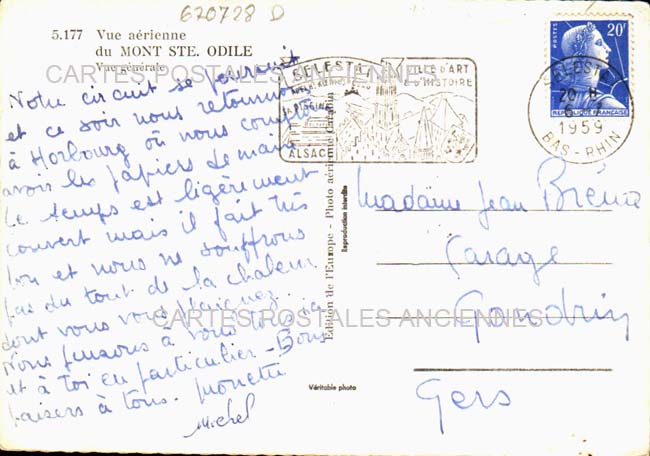 620728 D
5.177 Vue aérienne
du MONT STE. ODILE
Vue générale
CARTES POSTALES ANCIENNES
Notre circuit se poursuit
et ce soir nous retournons
à Horbourg où nous comptons
avoir les papiers demain
le temps est légèrement
couvert mais il fait très
bon et nous ne souffrons
pas du tout de la chaleur
dont vous vous plaignez.
Nous pensons à vous tous
et à toi en particulier - Bons
baisers à tous.
Michel
SELESTAT
VILLE D'ART
& D'HISTOIRE
ALSACE
POSTES
20F
REPUBLIQUE FRANÇAISE
SELESTAT
20 H
1959
BAS-RHIN
Edition de l'Europe - Photo aérienne
Reproduction interdite
Madame Jean
Garage
Gondrin
Gers
CARTES POSTALES ANCIENNES
Véritable photo